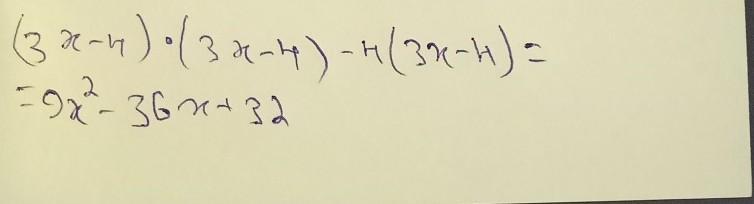 (3x-4)·(3x-4)-4(3x-4)=
=9x²-36x+32